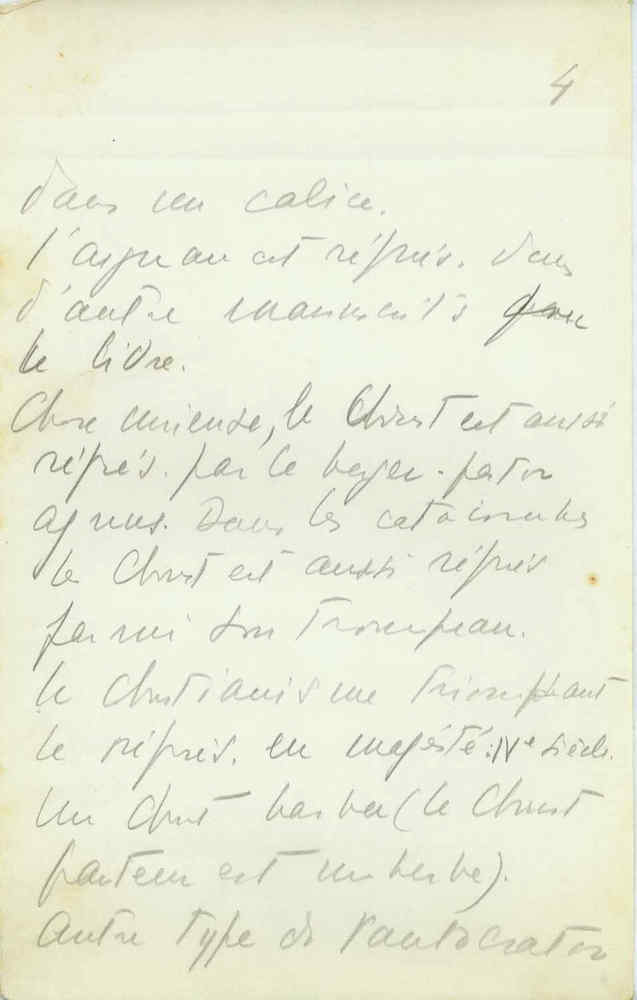 4
dans un calice.
l'agneau est réprés. dans
d'autre manuscrits
le livre.
Chose curieuse, le Christ est aussi
réprés. par le berger - pastor
agnus. Dans les catacombes
le Christ est aussi réprés
parmi son troupeau.
le Christianisme triomphant
le réprés. en majesté. IVe siècle.
Un Christ barbu (le Christ
pasteur est imberbe).
Autre type de Pantocrator